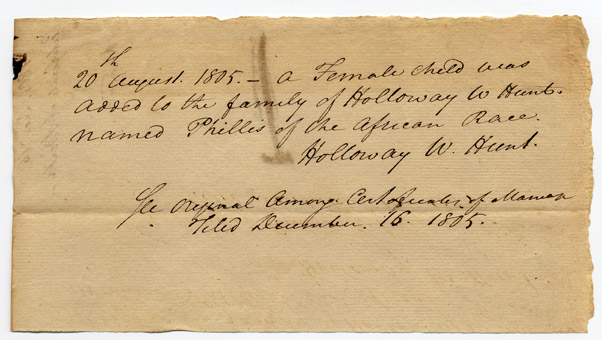 20th August. 1805.— a Female child was
added to the family of Holloway W Hunt.
named Phillis of the African Race.
Holloway W. Hunt.
See Original Among Certificates of
Filed December. 16. 1805.